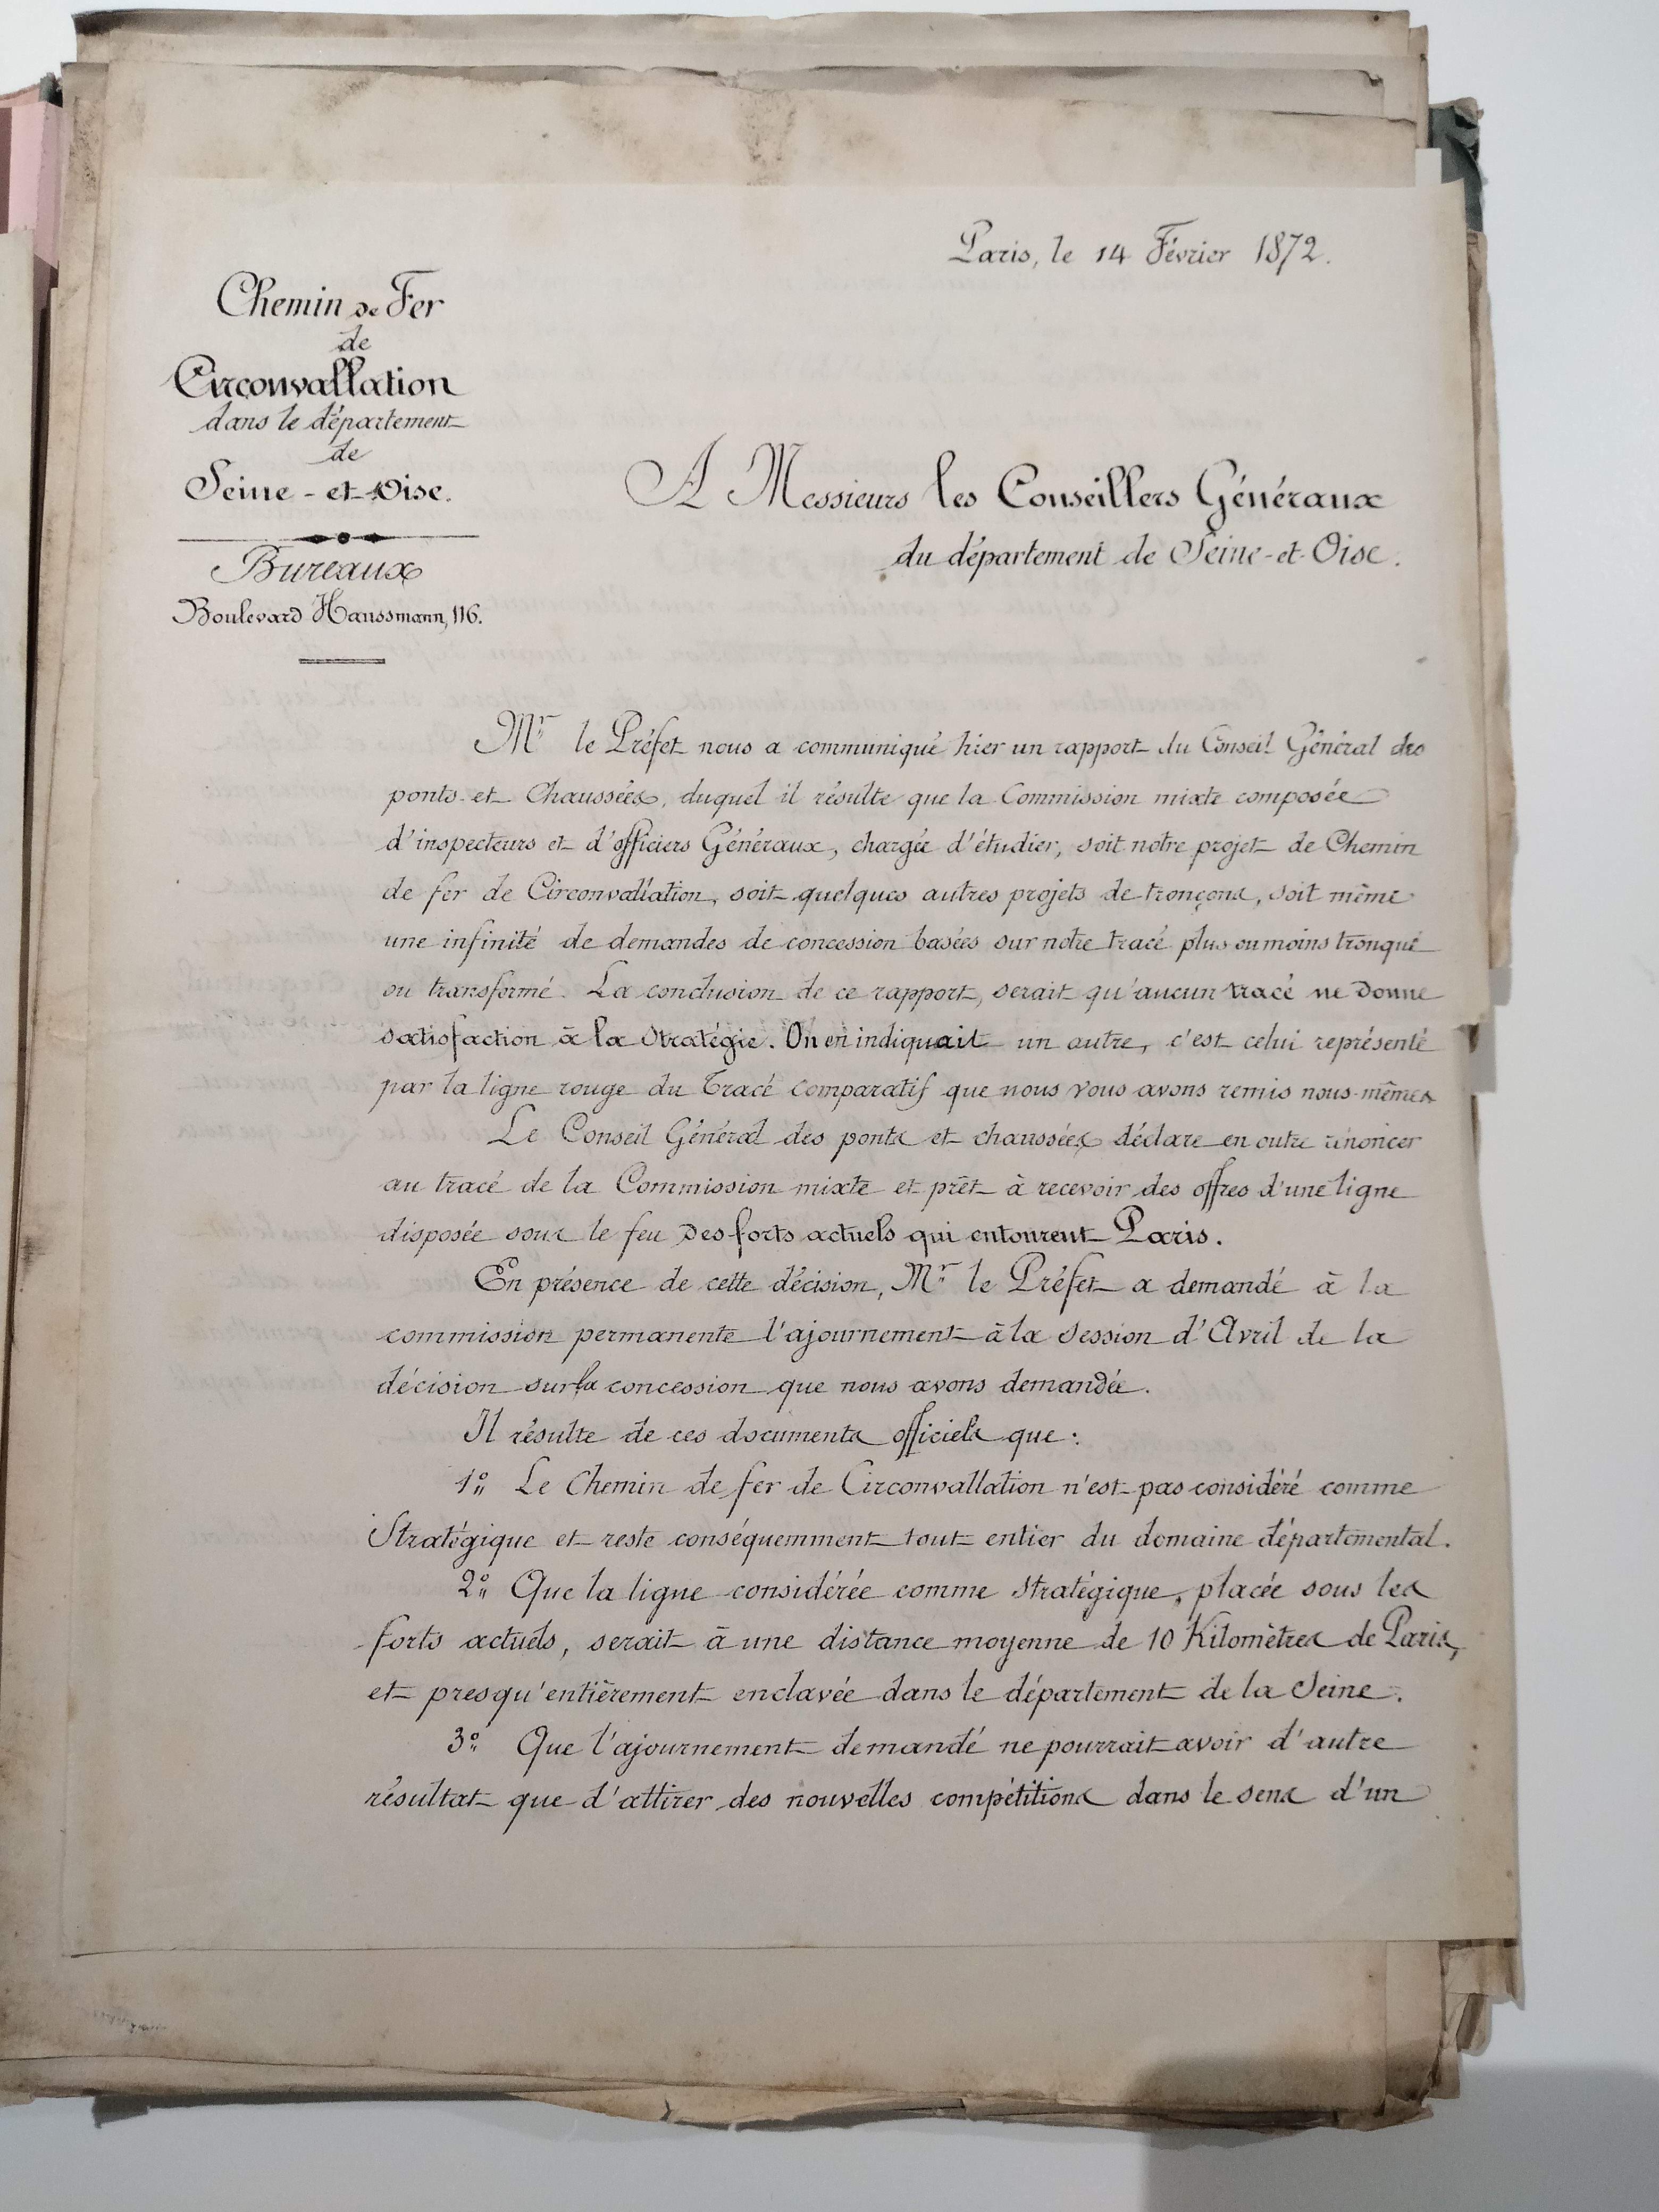 Paris, le 14 Février 1872.
Chemin de Fer
de
Circonvallation
dans le département
de
Seine-et-Oise.
Bureaux
Boulevard Haussmann, 116.
A Messieurs les Conseillers Généraux
du département de Seine-et-Oise.
Mr le Préfet nous a communiqué hier un rapport du Conseil Général des
ponts et Chaussées, duquel il résulte que la Commission mixte composée
d'inspecteurs et d'officiers Généraux, chargée d'étudier, soit notre projet de Chemin
de fer de Circonvallation, soit quelques autres projets de tronçons, soit même
une infinité de demandes de concession basées sur notre tracé plus ou moins tronqué
ou transformé. La conclusion de ce rapport, serait qu'aucun tracé ne donne
satisfaction à la Stratégie. On en indiquait un autre, c'est celui représenté
par la ligne rouge du Tracé comparatif que nous vous avons remis nous-mêmes
Le Conseil Général des ponts et chaussées déclare en outre rénoncer
au tracé de la Commission mixte et prêt à recevoir des offres d'une ligne
disposée sous le feu des forts actuels qui entourent Paris.
En présence de cette décision, Mr le Préfet a demandé à la
commission permanente l'ajournement à la Session d'Avril de la
décision sur la concession que nous avons demandée.
Il résulte de ces documents officiels que:
1o Le Chemin de fer de Circonvallation n'est pas considéré comme
Stratégique et reste conséquemment tout entier du domaine départemental.
2o Que la ligne considérée comme stratégique, placée sous les
forts actuels, serait à une distance moyenne de 10 Kilomètres de Paris,
et presqu'entièrement enclavée dans le département de la Seine.
3o Que l'ajournement demandé ne pourrait avoir d'autre
résultat que d'attirer des nouvelles compétitions dans le sens d'un